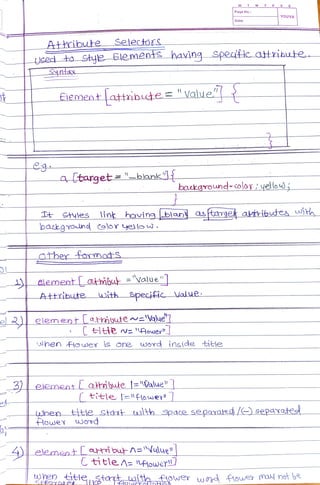 M T W T F S S
Page No.:
Date:
YOUVA
Attribute Selectors
Used to style Elements having specific attribute.
Syntax
Element [attribute = "value"] {
}
e.g.
a [target = "_blank"] {
background-color: yellow;
}
It styles link having blank as target attributes with
background color yellow.
Other formats
1) element [attribut = "value"]
Attribute with specific value.
2) element [attribute ~= "Value"]
[title ~= "flower"]
when flower is one word inside title
3) element [attribute |= "Value"]
[title |= "flower"]
when title start with space separated /(-) separated
flower word
4) element [attribut ^= "Value"]
[title ^= "flower"]
when title start with flower word flower may not be